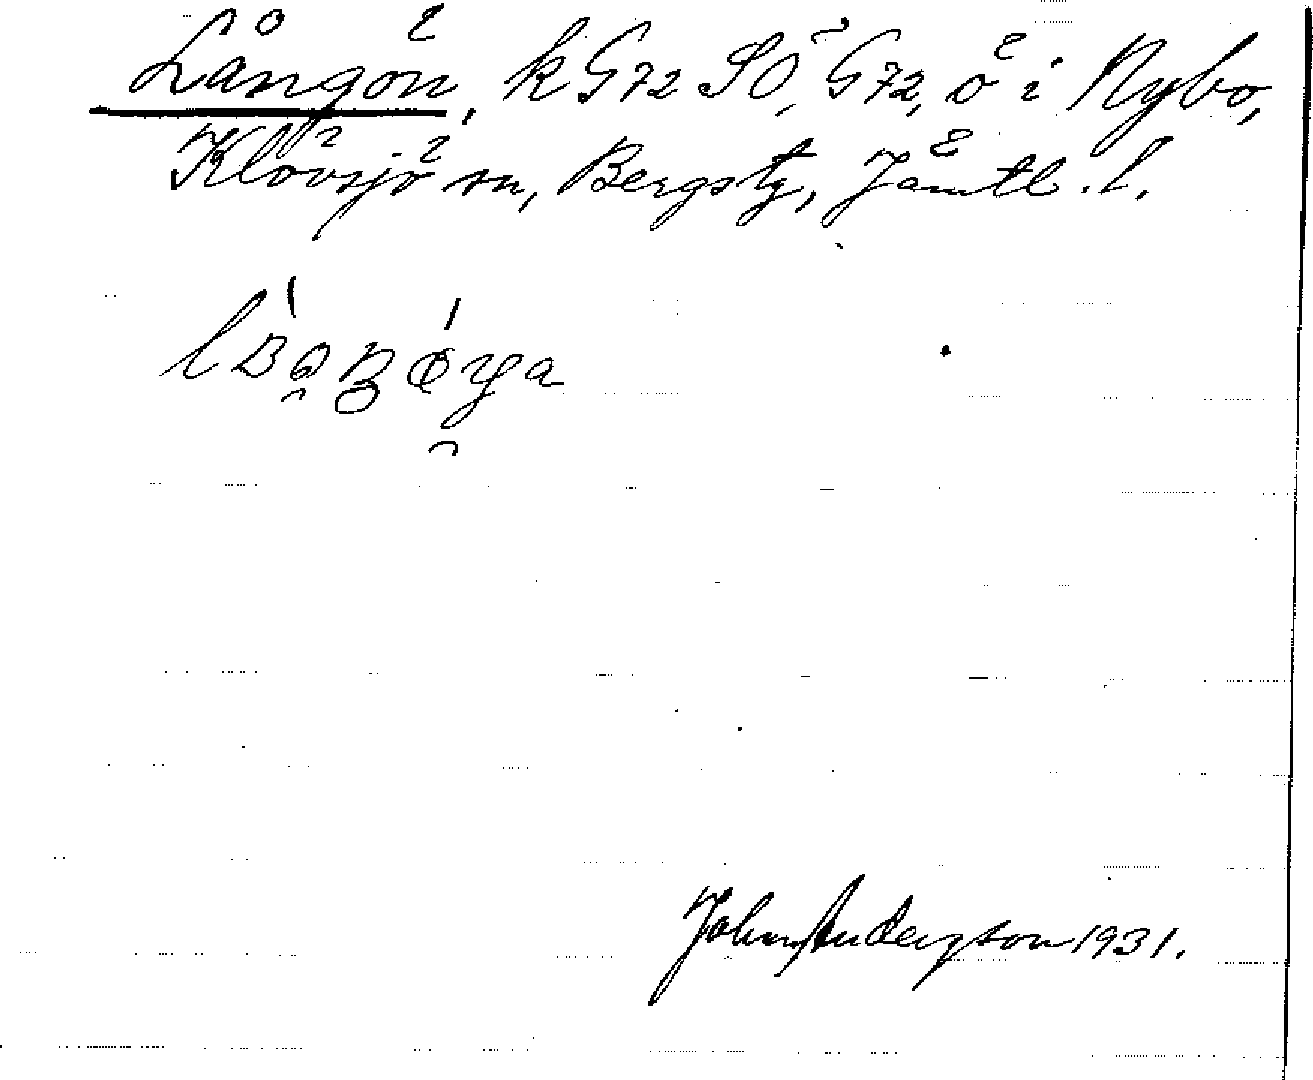 Långön, k G72 SO, G72, ö i Nybo,
Klövsjö sn, Bergs tg, Jämtl. l.
John Anderzson 1931.